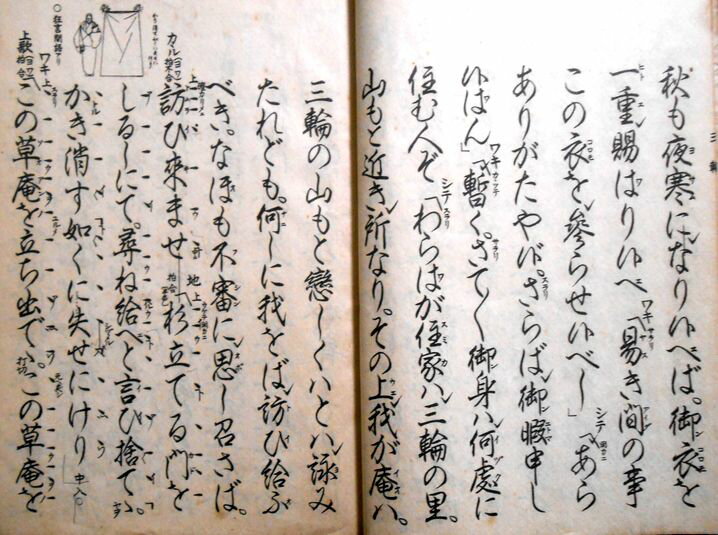 三輪
秋も夜寒になり候へば。御衣を
一重賜はり候へ ワキ「易き間の事
この衣を參らせ候べし」 シテ「あら
ありがたや候。さらば御暇申し
候はん」 ワキ「暫く。さて〱御身ハ何處に
住む人ぞ シテ「わらはが住家ハ三輪の里。
山もと近き所なり。その上我が庵ハ。
三輪の山もと戀しくハとハ詠み
たれども。何しに我をば訪ひ給ふ
べき。なほも不審に思し召さば。
訪ひ來ませ 地上 杉立てる門を
しるしにて。尋ね給へと言ひ捨てゝ
かき消す如くに失せにけり 中入
○狂言間語アリ
ワキ上歌 この草庵を立ち出でゝ。打切 この草庵を